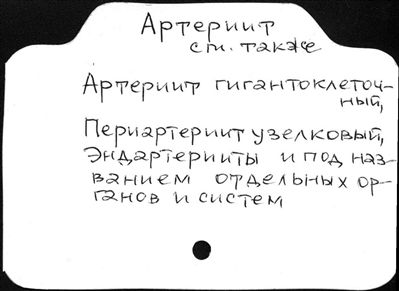 Артериит
см. также
Артериит гигантоклеточ-
ный,
Периартериит узелковый,
Эндартерииты и под наз-
ванием отдельных ор-
ганов и систем